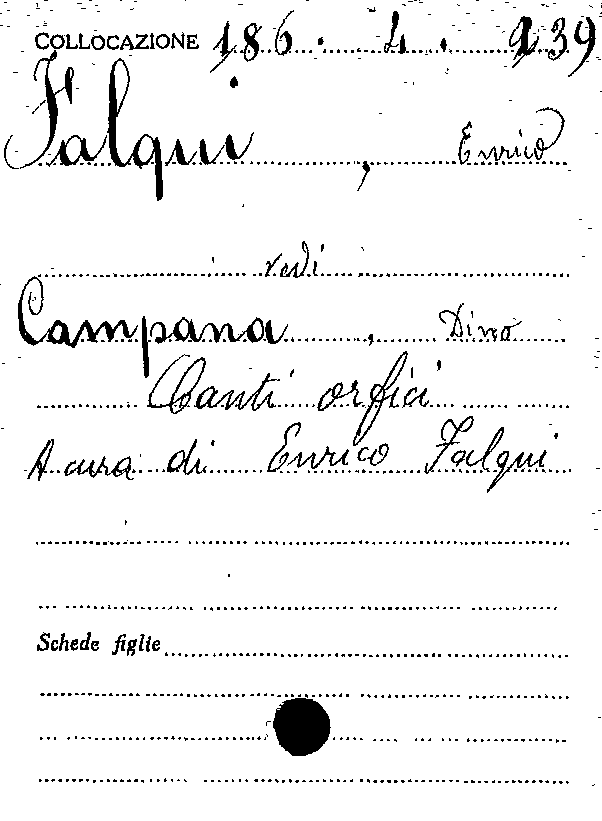 COLLOCAZIONE 186. 4. 939
Falqui, Enrico
vedi
Campana, Dino
Canti orfici
A cura di Enrico Falqui
Schede figlie